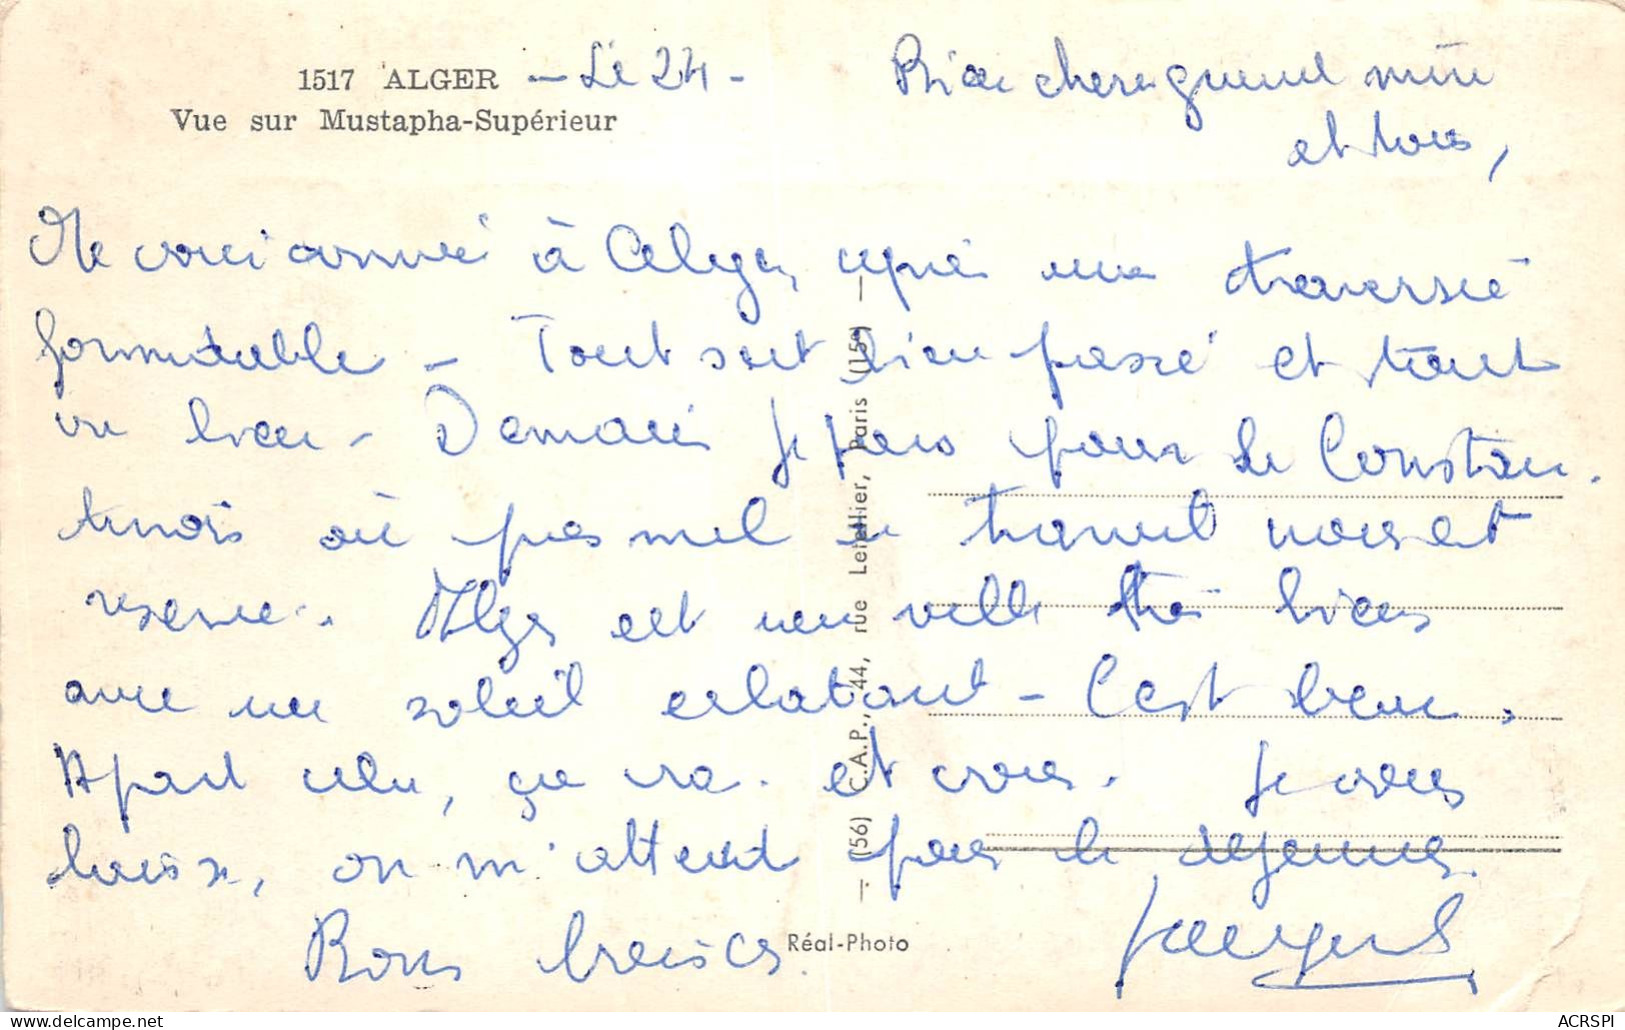 1517 ALGER - Le 24 -
Vue sur Mustapha-Supérieur
Bien chère grand mère
et tous,
Me voici arrivé à Alger, après une traversée
formidable - Tout s'est bien passé et tout
va bien - Demain je pars pour le Constan-
tinois où pas mal de travail nous est
réservé. Alger est une ville très
avec un soleil éclatant - C'est beau.
A part cela, ça va. et vous. Je vous
laisse, on m'attend pour le déjeuner
Bons baisers.
Réal-Photo
— (56) C.A.P., 44, rue Letellier, Paris (15e) —
ACRSPI